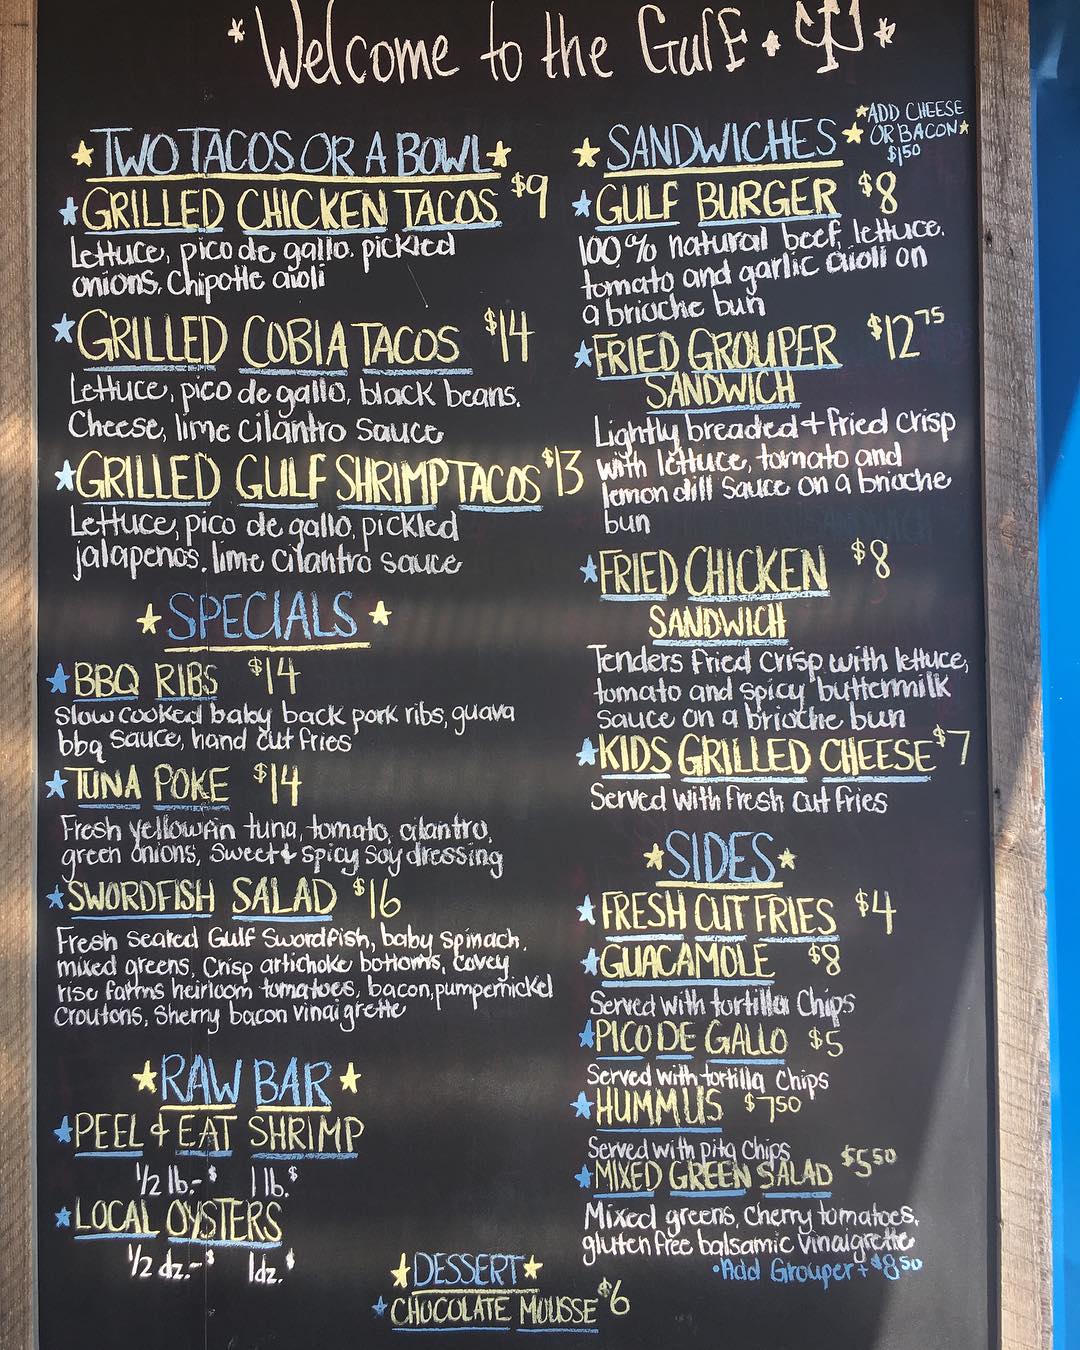 *Welcome to the Gulf.*
TWO TACOS OR A BOWL
GRILLED CHICKEN TACOS $9
Lettuce, pico de gallo, pickled
onions, Chipotle aioli
GRILLED COBIA TACOS $14
Lettuce, pico de gallo, black beans.
Cheese, lime cilantro sauce
GRILLED GULF SHRIMP TACOS $13
Lettuce, pico de gallo, pickled
jalapenos, lime cilantro sauce
SPECIALS
BBQ RIBS $14
Slow cooked baby back pork ribs, guava
bbq sauce, hand cut fries
TUNA POKE $14
Fresh yellowfin tuna, tomato, cilantro,
green onions, Sweet & spicy soy dressing
SWORDFISH SALAD $16
Fresh seared Gulf Swordfish, baby spinach,
mixed greens, Crisp artichoke bottoms, Covey
rise farms heirloom tomatoes, bacon, pumpernickel
Croutons, Sherry bacon vinaigrette
RAW BAR
PEEL & EAT SHRIMP
1/2 lb.-$ 1 lb.$
LOCAL OYSTERS
1/2 dz.-$ 1dz.$
SANDWICHES
*ADD CHEESE
OR BACON*
$1.50
GULF BURGER $8
100% natural beef, lettuce.
tomato and garlic aioli on
a brioche bun
FRIED GROUPER $12.75
SANDWICH
Lightly breaded + fried crisp
with lettuce, tomato and
lemon dill sauce on a brioche
bun
FRIED CHICKEN $8
SANDWICH
Tenders fried crisp with lettuce,
tomato and spicy buttermilk
sauce on a brioche bun
KIDS GRILLED CHEESE $7
Served with fresh cut fries
SIDES
FRESH CUT FRIES $4
GUACAMOLE $8
Served with tortilla Chips
PICO DE GALLO $5
Served with tortilla Chips
HUMMUS $7.50
Served with pita Chips
MIXED GREEN SALAD $5.50
Mixed greens, Cherry tomatoes,
gluten free balsamic vinaigrette
•Add Grouper + $8.50
DESSERT
CHOCOLATE MOUSSE $6